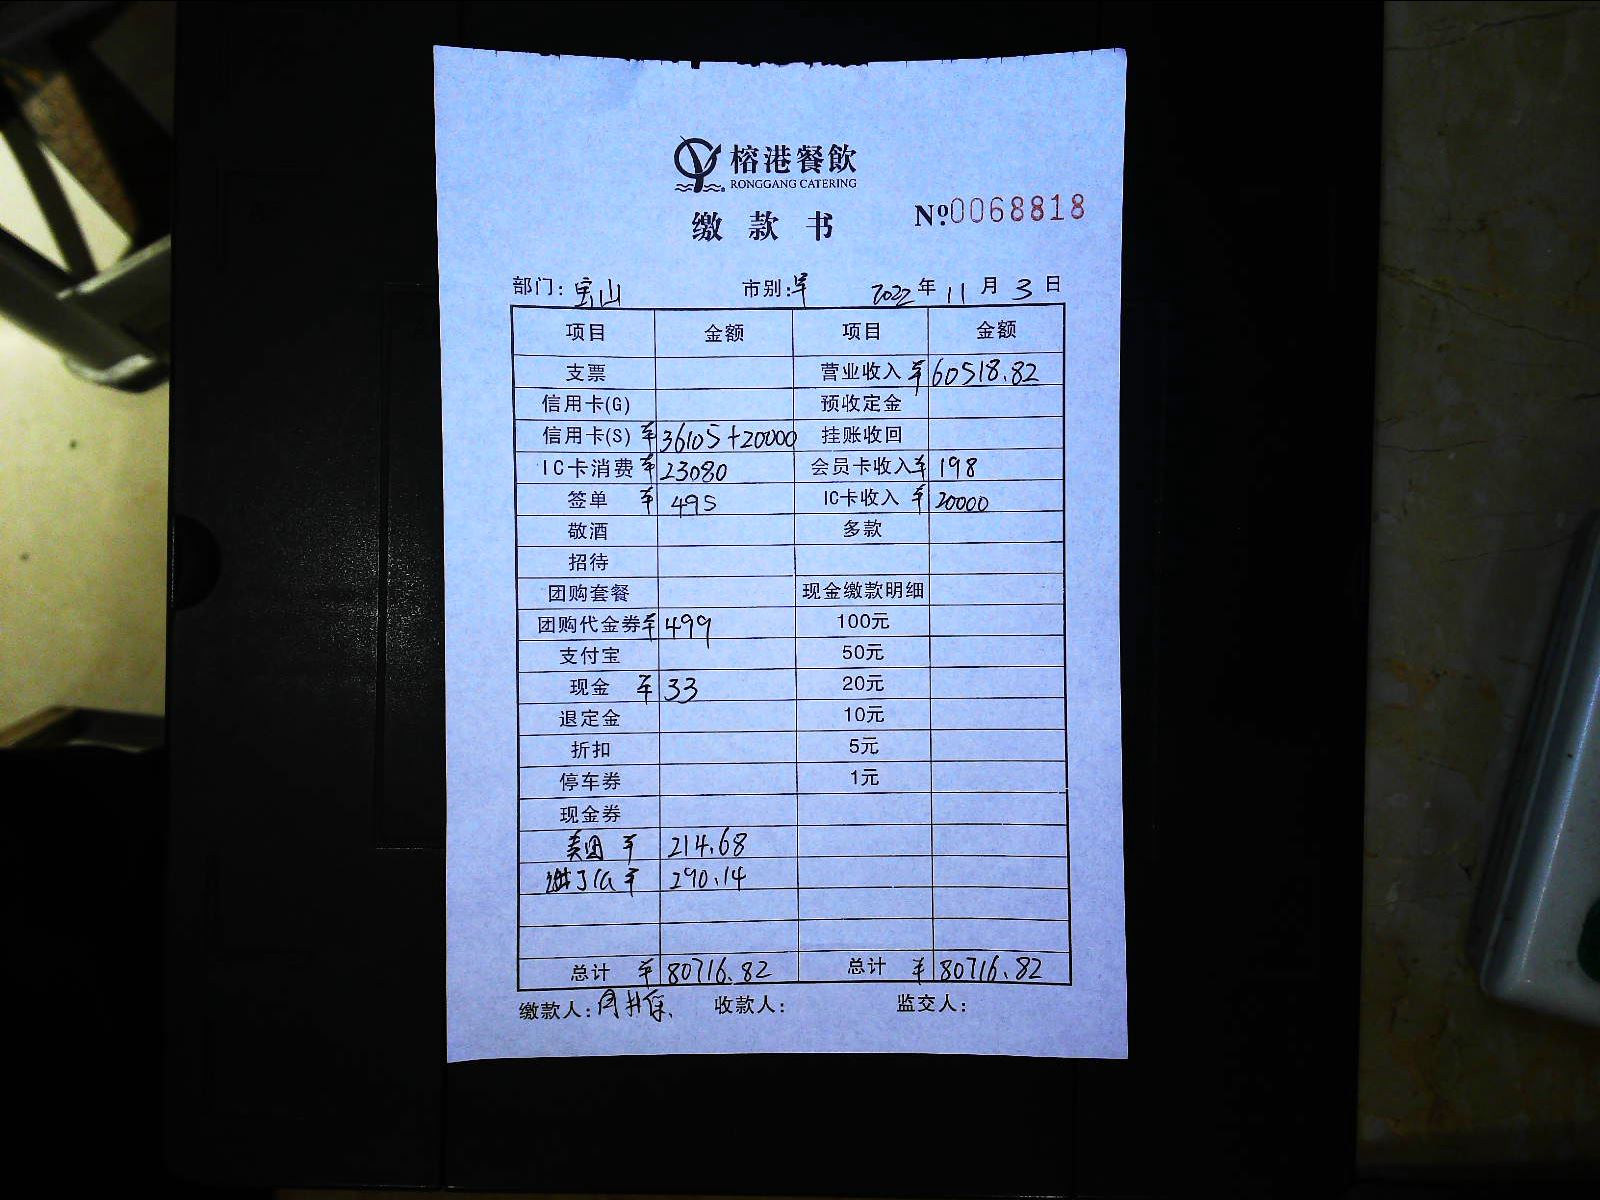 榕港餐飲
RONGGANG CATERING
缴款书
Nº:0068818
部门:宝山 市别:早 2022年11月3日
项目 金额 项目 金额
支票 营业收入 ¥60518.82
信用卡(G) 预收定金
信用卡(S) ¥36105+20000 挂账收回
IC卡消费 ¥23080 会员卡收入 ¥198
签单 ¥495 IC卡收入 ¥20000
敬酒 多款
招待
团购套餐 现金缴款明细
团购代金券 ¥499 100元
支付宝 50元
现金 ¥33 20元
退定金 10元
折扣 5元
停车券 1元
现金券
美团 ¥214.68
¥290.14
总计 ¥80716.82 总计 ¥80716.82
缴款人: 收款人: 监交人: